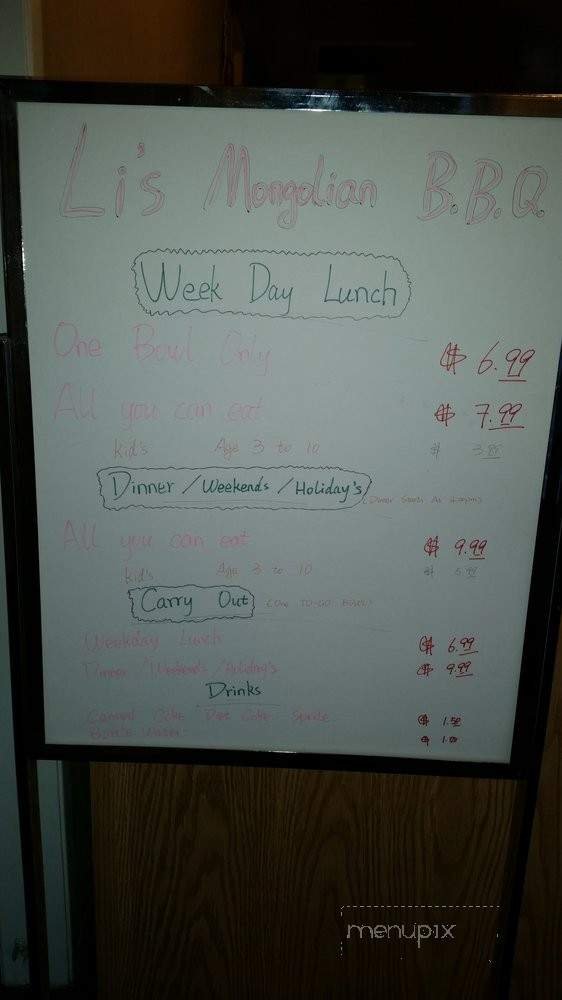 Li's Mongolian B.B.Q.
Week Day Lunch
One Bowl Only $ 6.99
All you can eat $ 7.99
kid's Age 3 to 10 $ 3.
Dinner / Weekends / Holiday's (Dinner Starts At
All you can eat $ 9.99
kid's Age 3 to 10 $ 5.99
Carry Out (One TO-GO Bowl)
Weekday Lunch $ 6.99
Dinner / Weekends / Holiday's $ 9.99
Drinks
Canned Coke Diet Coke Sprite $ 1.50
Water $ 1.00
menupix